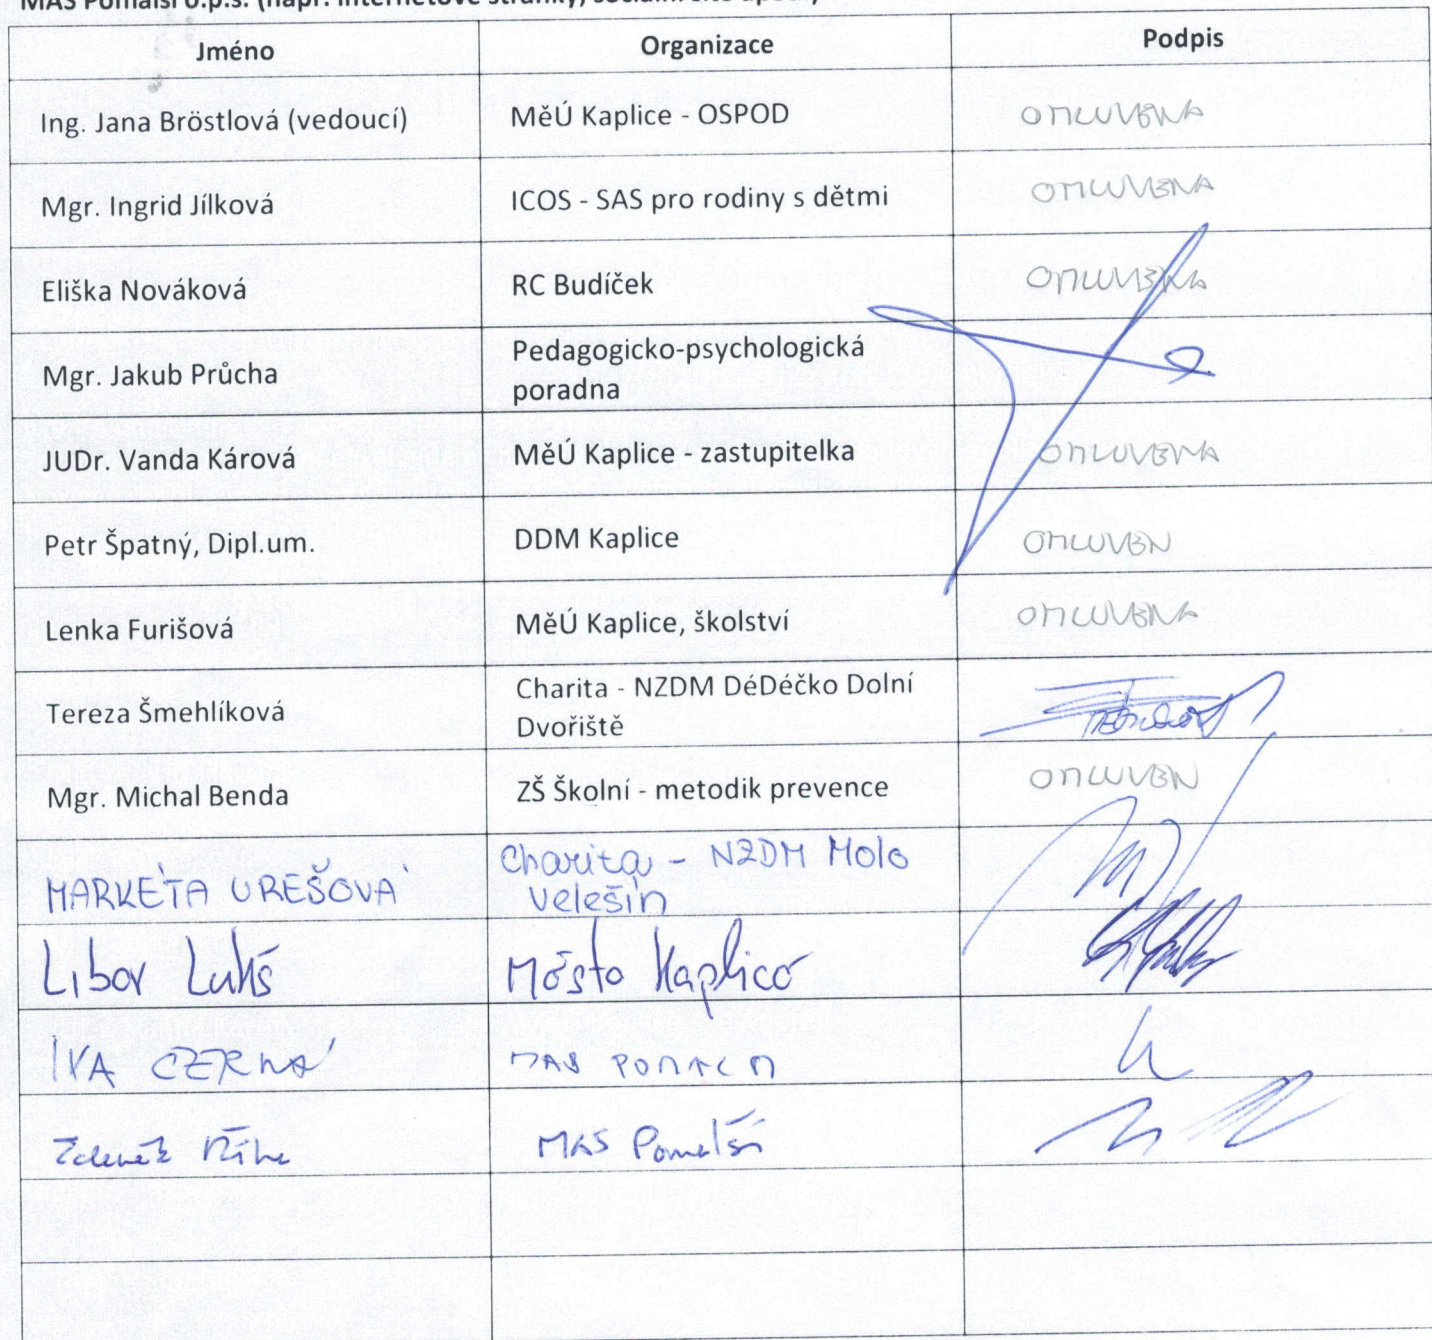 MAS Pomalší o.p.s. (např. internetové stránky, sociální sítě apod.)
Jméno Organizace Podpis
Ing. Jana Bröstlová (vedoucí) MěÚ Kaplice - OSPOD OMLUVENA
Mgr. Ingrid Jílková ICOS - SAS pro rodiny s dětmi OMLUVENA
Eliška Nováková RC Budíček OMLUVENA
Mgr. Jakub Průcha Pedagogicko-psychologická
poradna
JUDr. Vanda Kárová MěÚ Kaplice - zastupitelka OMLUVENA
Petr Špatný, Dipl.um. DDM Kaplice OMLUVEN
Lenka Furišová MěÚ Kaplice, školství OMLUVENA
Tereza Šmehlíková Charita - NZDM DéDéčko Dolní
Dvořiště
Mgr. Michal Benda ZŠ Školní - metodik prevence OMLUVEN
MARKÉTA UREŠOVÁ Charita - NZDM Molo
Velešín
Libor Lukš Město Kaplice
IVA CZERNÁ MAS POMALŠÍ
Zdeněk Říha MAS Pomalší